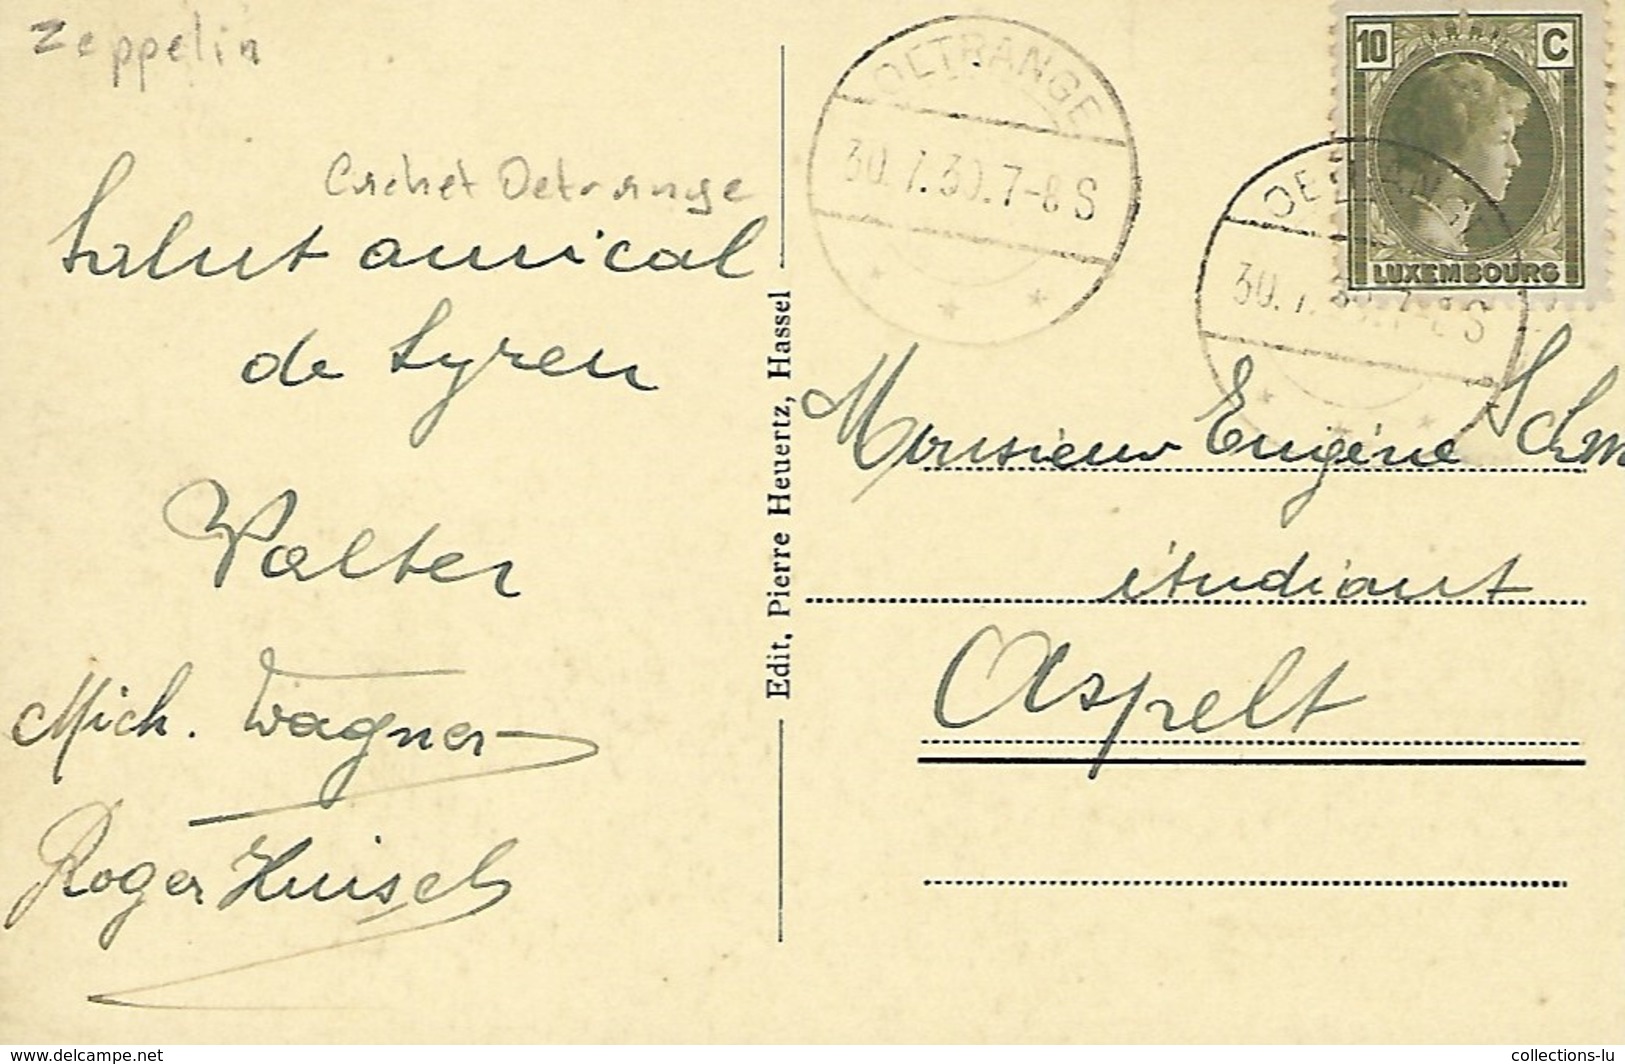 Zeppelin
Cachet Oetrange
Salut amical
de Syren
Walter
Mich. Wagner
Roger
Edit. Pierre Heuertz, Hassel
OETRANGE
30.7.30.7-8 S
10 C
LUXEMBOURG
OETRANGE
30.7.30.7-8 S
Monsieur Eugène Schm
étudiant
Aspelt
www.delcampe.net
collections-lu